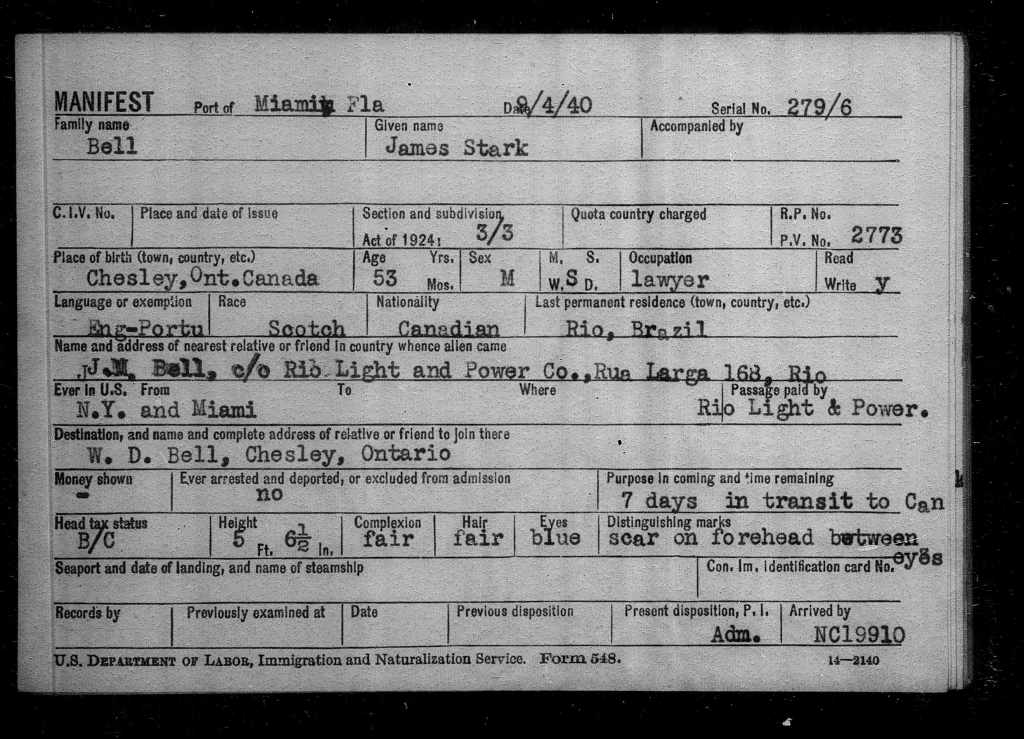 MANIFEST Port of Miami, Fla Date 9/4/40 Serial No. 279/6
Family name Given name Accompanied by
Bell James Stark
C.I.V. No. Place and date of issue Section and subdivision, Quota country charged R.P. No.
Act of 1924: 3/3 P.V. No. 2773
Place of birth (town, country, etc.) Age Yrs. Sex M. S. Occupation Read
Chesley,Ont.Canada 53 Mos. M W.S D. lawyer Write y
Language or exemption Race Nationality Last permanent residence (town, country, etc.)
Eng-Portu Scotch Canadian Rio, Brazil
Name and address of nearest relative or friend in country whence alien came
J.M. Bell, c/o Rio Light and Power Co.,Rua Larga 168, Rio
Ever in U.S. From To Where Passage paid by
N.Y. and Miami Rio Light & Power.
Destination, and name and complete address of relative or friend to join there
W. D. Bell, Chesley, Ontario
Money shown Ever arrested and deported, or excluded from admission Purpose in coming and time remaining
- no 7 days in transit to Can
Head tax status Height Complexion Hair Eyes Distinguishing marks
B/C 5 Ft. 6½ In. fair fair blue scar on forehead between
eyes
Seaport and date of landing, and name of steamship Con. Im. Identification card No.
Records by Previously examined at Date Previous disposition Present disposition, P. I. Arrived by
Adm. NC19910
U.S. DEPARTMENT OF LABOR, Immigration and Naturalization Service. Form 548. 14—2140